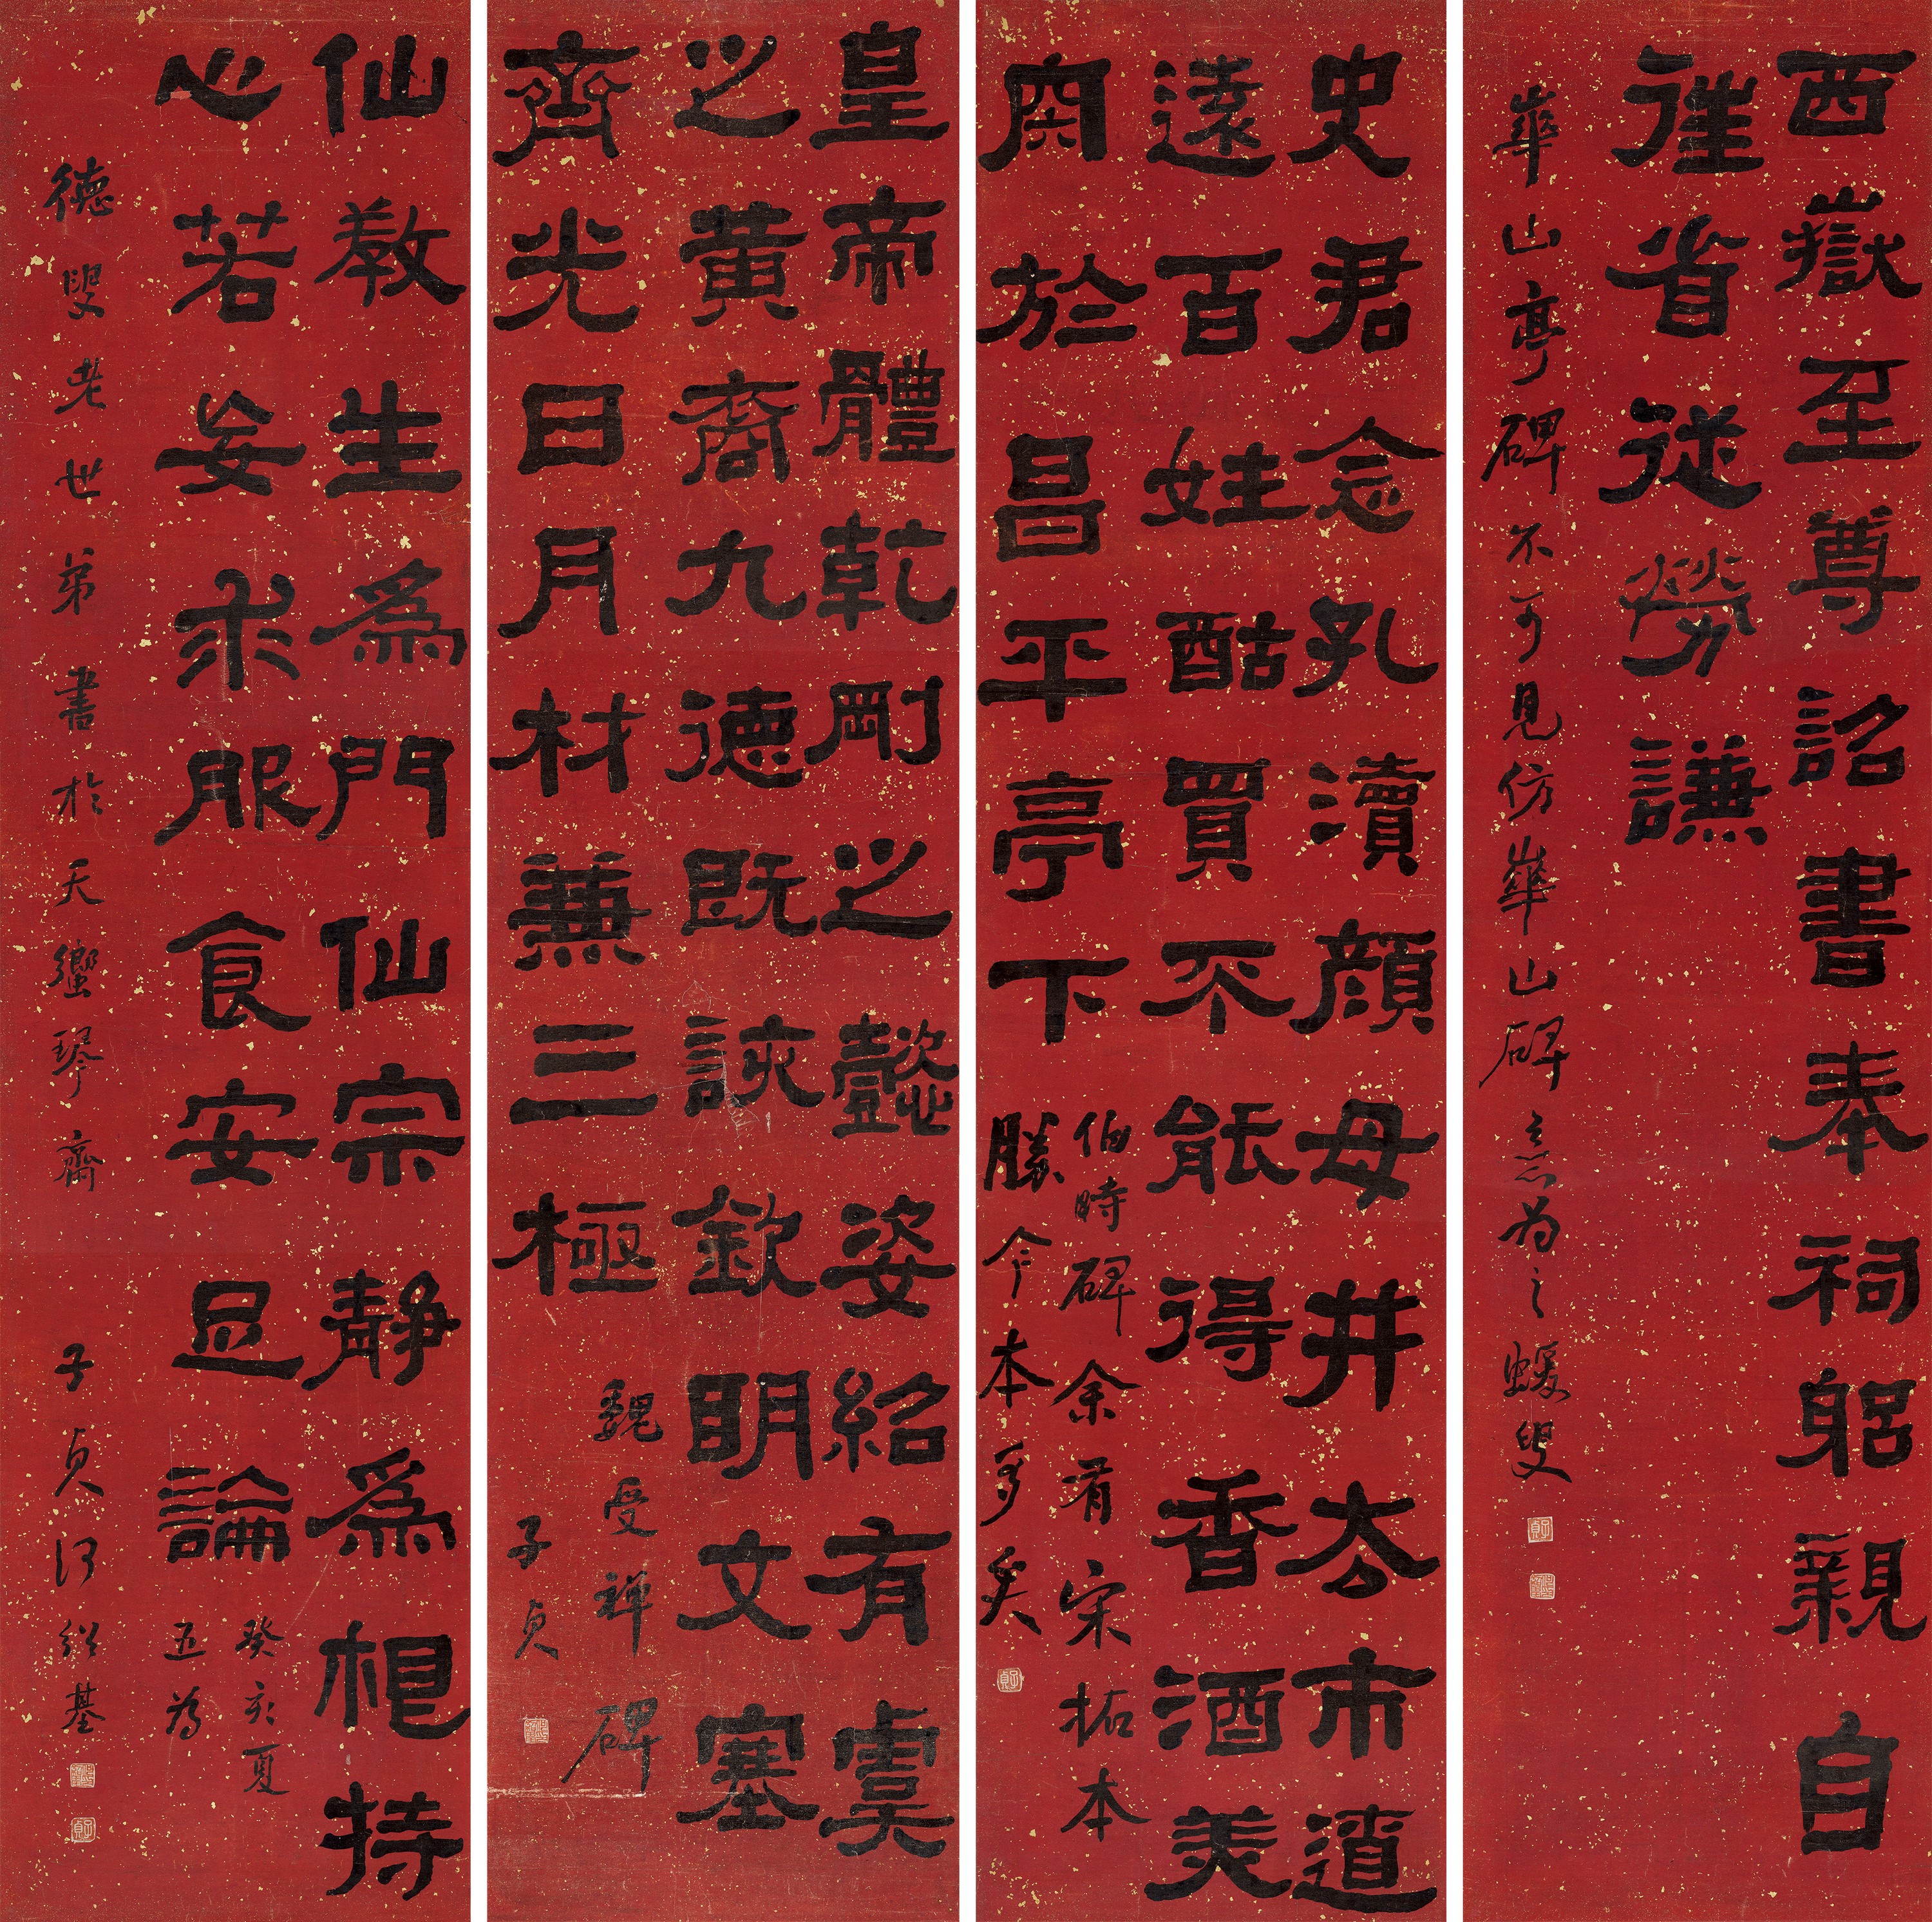 西嶽至尊詔書奉祠躳親自
往省從勞謙
華山亭碑不可見仿華山碑意為之蝯叟
史君念孔瀆顏母井去市道
遠百姓酤買不能得香酒美
肉於昌平亭下
伯時碑余有宋拓本
勝今本多矣
皇帝體乾剛之懿姿紹有虞
之黃裔九德既該欽明文塞
齊光日月材兼三極
魏受禪碑
子貞
仙教生為門仙宗靜為根持
心若妄求服食安足論
癸亥夏
五為
德叟老世弟書於天蠁琴齋 子貞何紹基